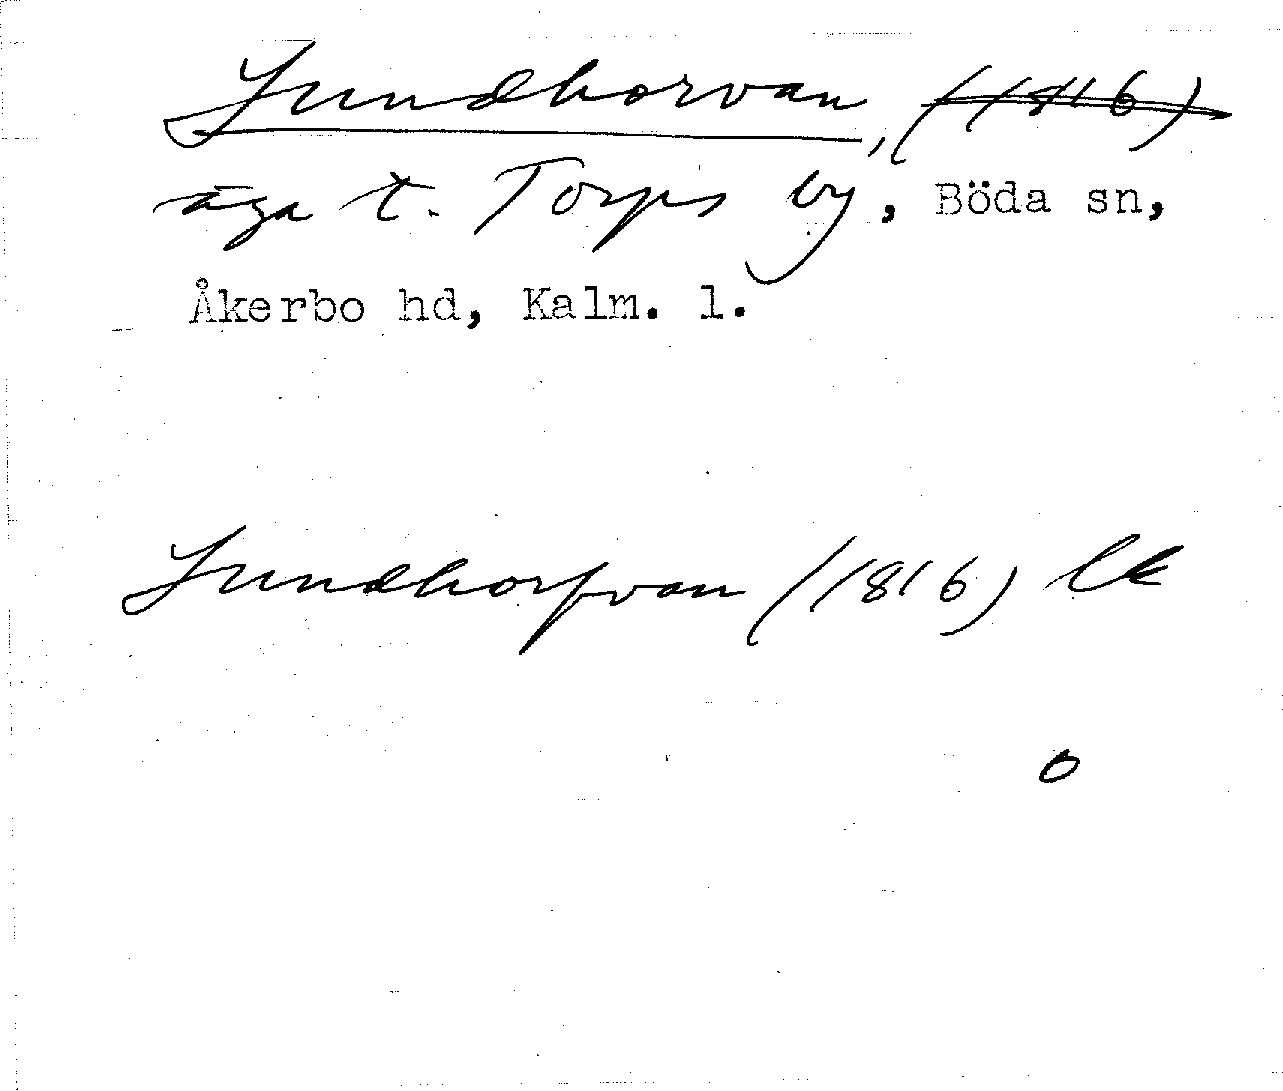 Lundhorvan, (1816)
äga t. Torps by, Böda sn,
Åkerbo hd, Kalm. l.
Lundhorfvan (1816) lk
o